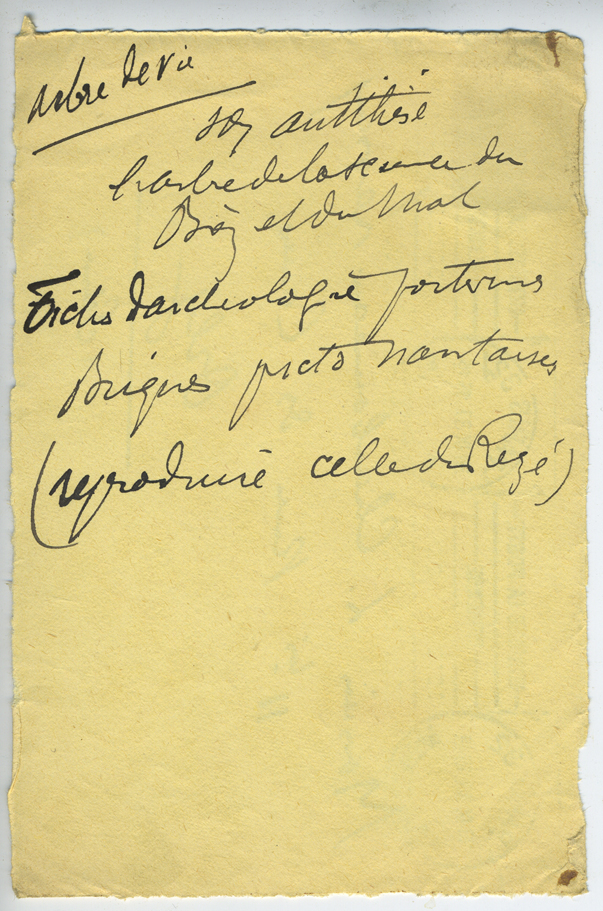 arbre de vie
son antithèse
l'arbre de la science du
Bien et du Mal
Fiches d'archeologie poitevines
Briques picto nantaises
(reproduire celle du Rezé)